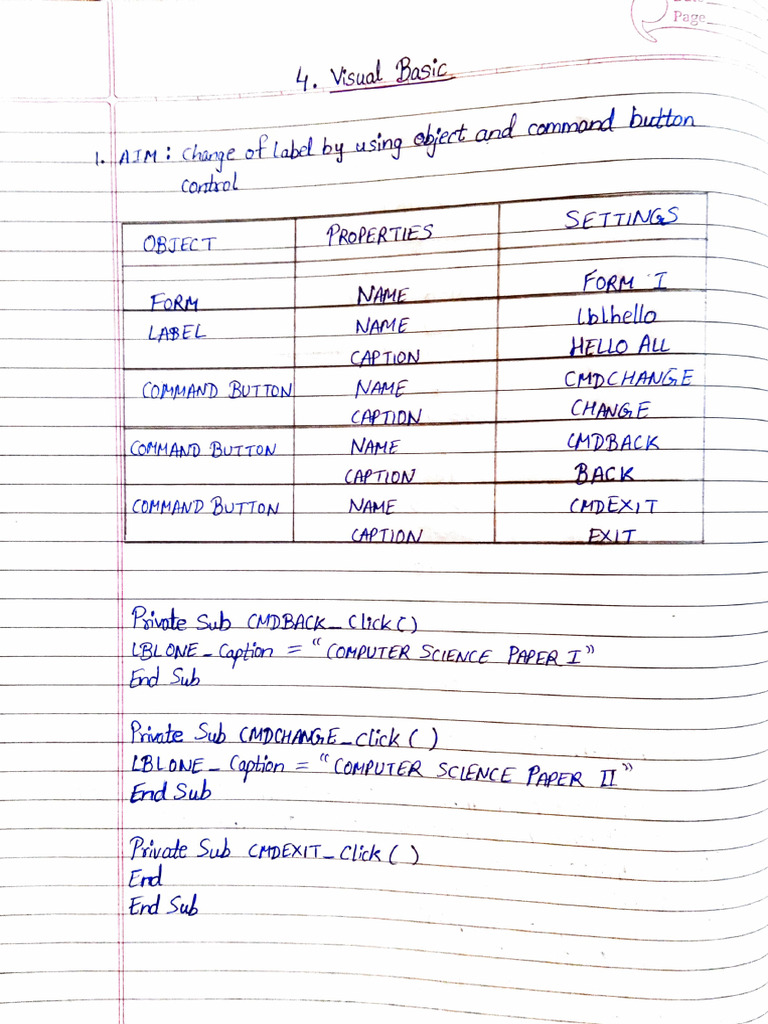 Page
4. Visual Basic
1. AIM : Change of label by using object and command button
control
OBJECT PROPERTIES SETTINGS
FORM NAME FORM I
LABEL NAME lblhello
CAPTION HELLO ALL
COMMAND BUTTON NAME CMDCHANGE
CAPTION CHANGE
COMMAND BUTTON NAME CMDBACK
CAPTION BACK
COMMAND BUTTON NAME CMDEXIT
CAPTION EXIT
Private Sub CMDBACK_Click()
LBLONE_Caption = "COMPUTER SCIENCE PAPER I"
End Sub
Private Sub CMDCHANGE_Click ( )
LBLONE_Caption = "COMPUTER SCIENCE PAPER II"
End Sub
Private Sub CMDEXIT_Click ( )
End
End Sub